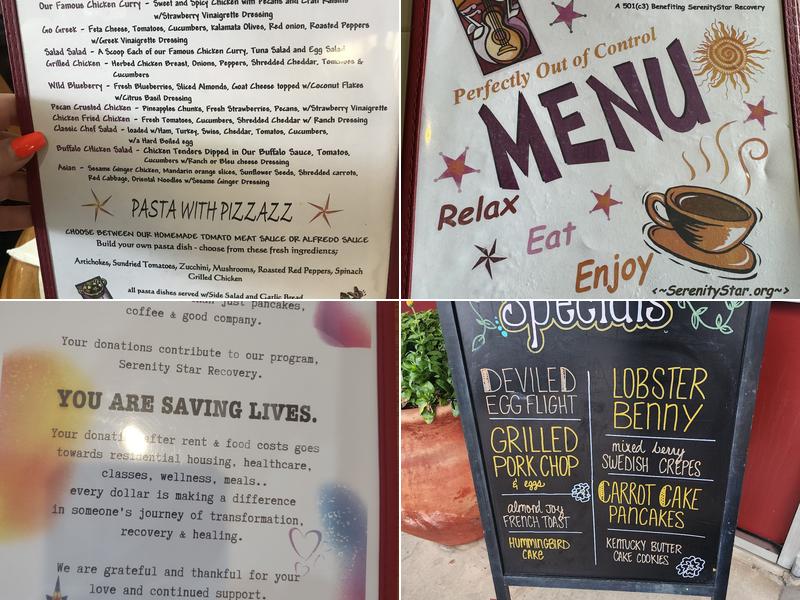 Our Famous Chicken Curry - Sweet and Spicy Chicken with Pecans and Craft Raisins
w/Strawberry Vinaigrette Dressing
Go Greek - Feta Cheese, Tomatoes, Cucumbers, kalamata Olives, Red onion, Roasted Peppers
w/Greek Vinaigrette Dressing
Salad Salad - A Scoop Each of our Famous Chicken Curry, Tuna Salad and Egg Salad
Grilled Chicken - Herbed Chicken Breast, Onions, Peppers, Shredded Cheddar, Tomatoes &
Cucumbers
Wild Blueberry - Fresh Blueberries, Sliced Almonds, Goat Cheese topped w/Coconut Flakes
w/Citrus Basil Dressing
Pecan Crusted Chicken - Pineapples Chunks, Fresh Strawberries, Pecans, w/Strawberry Vinaigrette
Chicken Fried Chicken - Fresh Tomatoes, Cucumbers, Shredded Cheddar w/ Ranch Dressing
Classic Chef Salad - loaded w/Ham, Turkey, Swiss, Cheddar, Tomatoes, Cucumbers,
w/a Hard Boiled egg
Buffalo Chicken Salad - Chicken Tenders Dipped in Our Buffalo Sauce, Tomatoes,
Cucumbers w/Ranch or Bleu cheese Dressing
Asian - Sesame Ginger Chicken, Mandarin orange slices, Sunflower Seeds, Shredded carrots,
Red Cabbage, Oriental Noodles w/Sesame Ginger Dressing
PASTA WITH PIZZAZZ
CHOOSE BETWEEN OUR HOMEMADE TOMATO MEAT SAUCE OR ALFREDO SAUCE
Build your own pasta dish - choose from these fresh ingredients;
Artichokes, Sundried Tomatoes, Zucchini, Mushrooms, Roasted Red Peppers, Spinach
Grilled Chicken
all pasta dishes served w/Side Salad and Garlic Bread
A 501(c3) Benefiting SerenityStar Recovery
Perfectly Out of Control
MENU
Relax
Eat
Enjoy
<~SerenityStar.org~>
than just pancakes,
coffee & good company.
Your donations contribute to our program,
Serenity Star Recovery.
YOU ARE SAVING LIVES.
Your donation after rent & food costs goes
towards residential housing, healthcare,
classes, wellness, meals..
every dollar is making a difference
in someone's journey of transformation,
recovery & healing.
We are grateful and thankful for your
love and continued support.
Specials
DEVILED
EGG FLIGHT
GRILLED
PORK CHOP
& eggs
almond joy
FRENCH TOAST
HUMMINGBIRD
CAKE
LOBSTER
BENNY
mixed berry
SWEDISH CREPES
CARROT CAKE
PANCAKES
KENTUCKY BUTTER
CAKE COOKIES